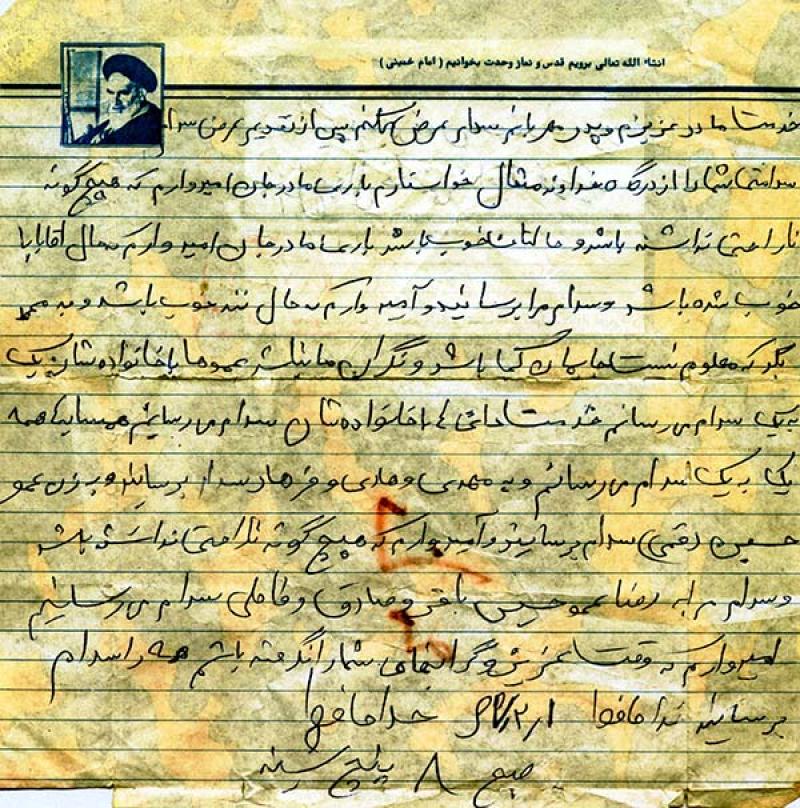 انشاء الله تعالی برویم قدس و نماز وحدت بخوانیم ( امام خمینی )
خدمت مادر عزیزم و پدر مهربانم سلام عرض میکنم پس از تقدیم عرض سلام
سلامتی شما را از درگاه خداوند متعال خواستارم باری مادر جان امیدوارم که هیچ گونه
ناراحتی نداشته باشد و حالتان خوب باشد باری مادر جان امیدوارم که حال آقا بابا
خوب شده باشد و سلام مرا برسانید و آمیدوارم که حال ننه خوب باشد و به
بگو که معلوم نیست ما باشد و نگران ما نباشد عموها با خانواده شان یک
به یک سلام می رسانم خدمت دائی ها با خانواده شان سلام می رسانم همسایه ها همه
یک به یک سلام می رسانم و به مهدی و هادی و فرهاد سلام برسانید و به زن عمو
حسین (قمی) سلام برسانید و آمیدوارم که هیچ گونه ناراحتی نداشته باشد
و سلام مرا به رضا عمو حسین باقر و صادق و سلام می رسانم
امیدوارم که وقت عزیز و گرانبهای شما را نگرفته باشم همه را سلام
برسانید خداحافظ ۶۲/۲/۱ خداحافظ
صبح ۸ پنج شنبه